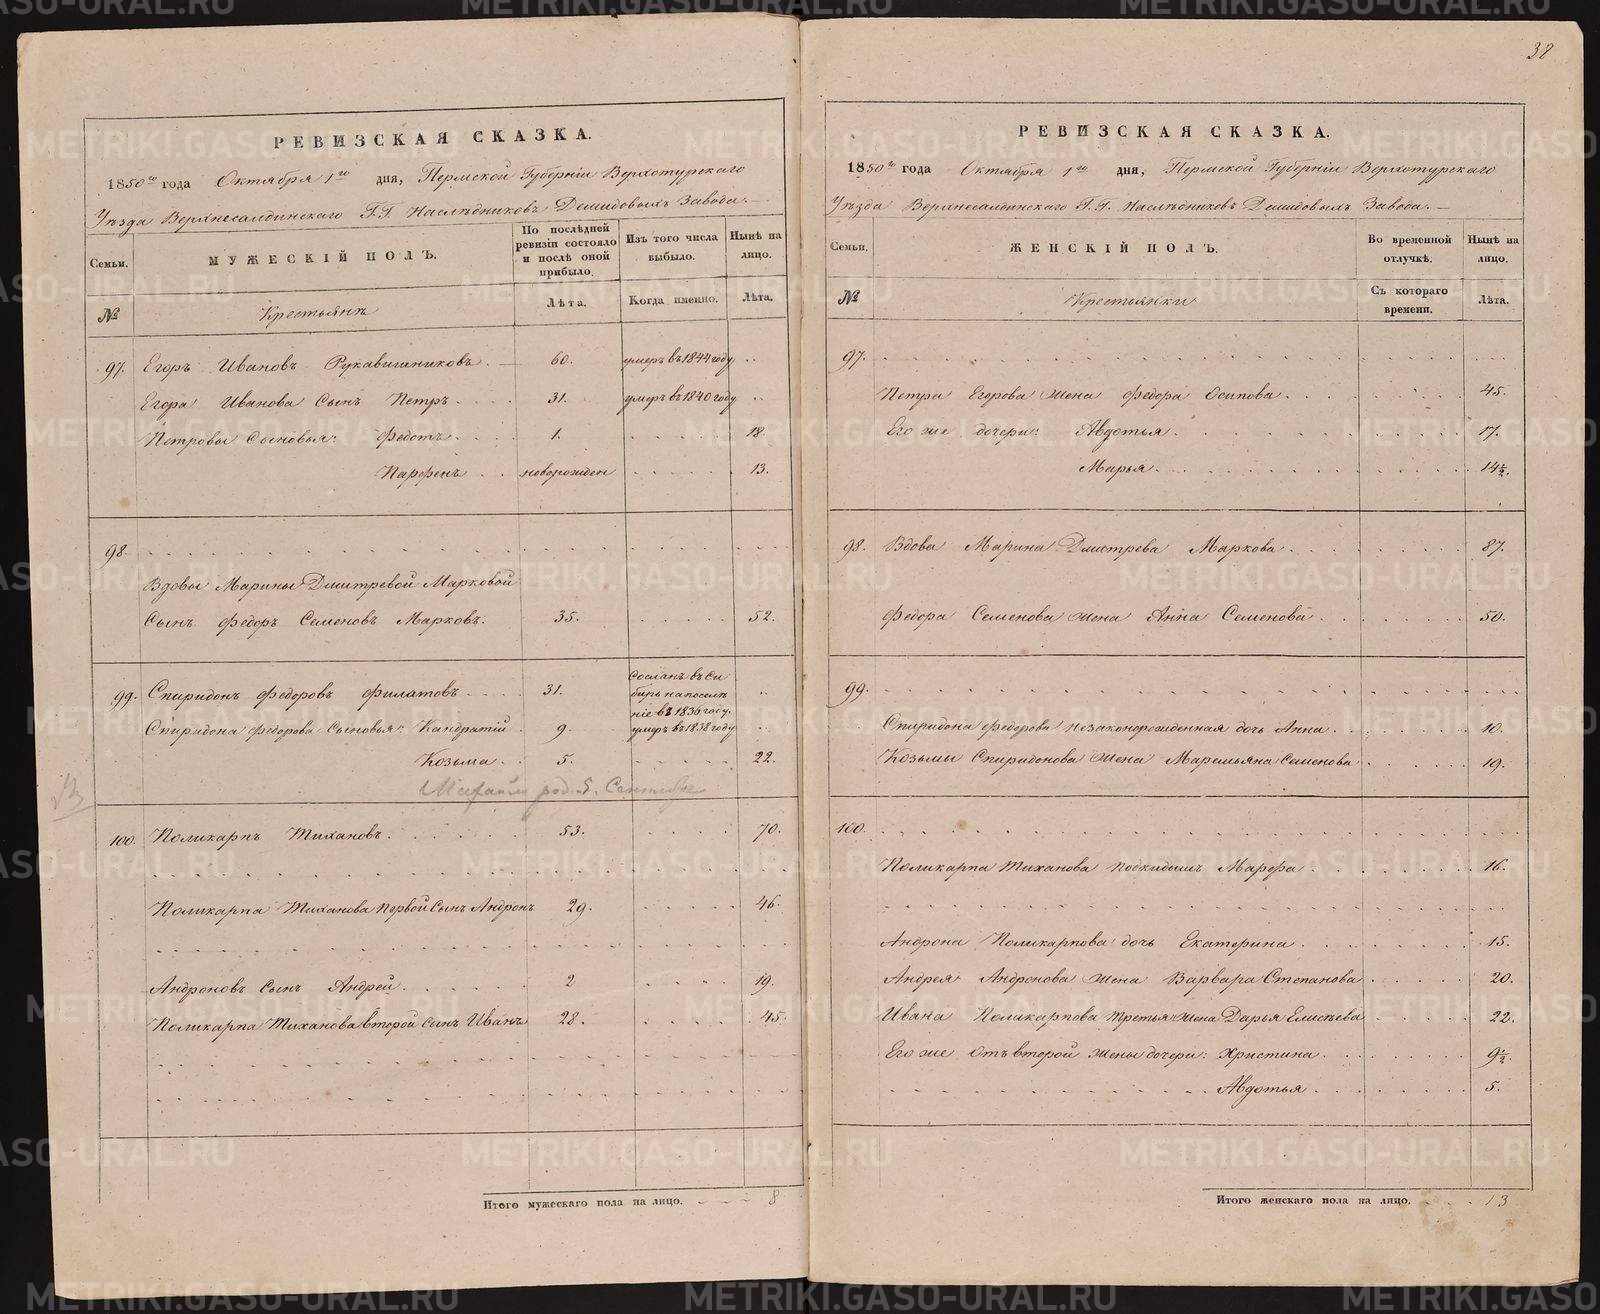 38
РЕВИЗСКАЯ СКАЗКА.
1850го года Октября 1го дня, Пермской Губерніи Верхотурскаго
Уѣзда Верхнесалдинскаго Г.Г. Наслѣдниковъ Демидовыхъ Завода.
Семьи. МУЖЕСКІЙ ПОЛЪ. По послѣдней ревизіи состояло и послѣ оной прибыло. Изъ того числа выбыло. Нынѣ на лицо.
№ Крестьянъ Лѣта. Когда именно. Лѣта.
97. Егоръ Ивановъ Рукавишниковъ. 60. умеръ въ 1844 году
Егора Иванова Сынъ Петръ 31. умеръ въ 1840 году
Петровы Сыновья: Федотъ 1. 18.
Парфенъ новорожден 13.
98.
Вдовы Марины Дмитревой Марковой
Сынъ Федоръ Семеновъ Марковъ. 35. 52.
99. Спиридонъ Федоровъ Филатовъ 31. Сосланъ въ Си
бирь на поселе
ніе въ 1836 году.
Спиридона Федорова Сыновья: Кандратій 9. умеръ въ 1838 году
Козьма 5. 22.
род. 5. Сентября
100. Поликарпъ Тихановъ. 53. 70.
Поликарпа Тиханова первой сынъ Андронъ 29. 46.
Андроновъ сынъ Андрей 2 19.
Поликарпа Тиханова второй сынъ Иванъ 28. 45.
Итого мужескаго пола на лицо. 8
РЕВИЗСКАЯ СКАЗКА.
1850го года Октября 1го дня, Пермской Губерніи Верхотурскаго
Уѣзда Верхнесалдинскаго Г.Г. Наслѣдниковъ Демидовыхъ Завода.
Семьи. ЖЕНСКІЙ ПОЛЪ. Во временной отлучкѣ. Нынѣ на лицо.
№ Крестьянки Съ котораго времени. Лѣта.
97.
Петра Егорова жена Федора Осипова 45.
Его же дочери: Авдотья 17.
Марья 14½.
98. Вдова Марина Дмитрева Маркова 87.
Федора Семенова жена Анна Семенова 50.
99.
Спиридона Федорова незаконорожденная дочь Анна 10.
Козьмы Спиридонова жена Маремьяна Семенова 19.
100.
Поликарпа Тиханова подкидышъ Марфа 16.
Андрона Поликарпова дочь Екатерина 15.
Андрея Андронова жена Варвара Степанова 20.
Ивана Поликарпова третья жена Дарья Елисѣева 22.
Его же отъ второй жены дочери: Христина 9½.
Авдотья 5.
Итого женскаго пола на лицо. 13
METRIKI.GASO-URAL.RU